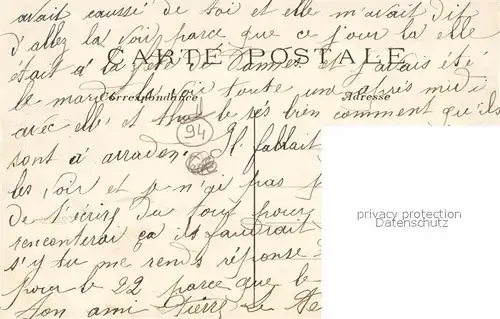 avait caussé de toi et elle m'avait dit
d'allez la voir parce que ce jour la elle
CARTE POSTALE
était à la fête de Vannes et j'avais été
le mardi moi toute une après midi
Correspondance Adresse
avec elle et tu le sais bien comment qu'ils
94
sont à arradon. Il fallait
les voir et je n'ai pas
de t'écrire du tout pour
rencontrerai ça il faudrait
s'y tu me rends réponse
pour le 22 parce que le
ton ami Pierre Le
privacy protection
Datenschutz